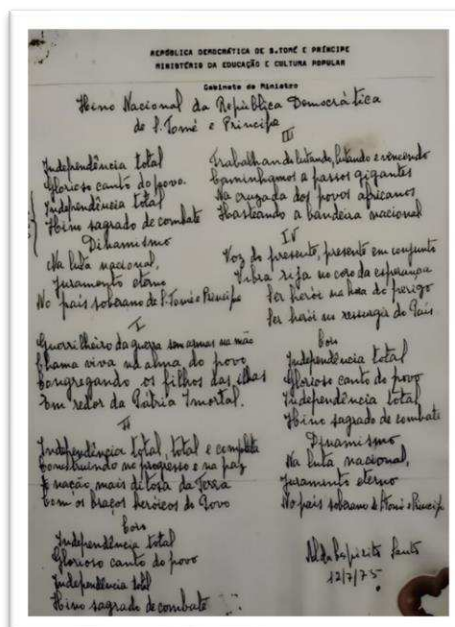 REPÚBLICA DEMOCRÁTICA DE S.TOMÉ E PRÍNCIPE
MINISTÉRIO DA EDUCAÇÃO E CULTURA POPULAR
Gabinete do Ministro
Hino Nacional da República Democrática
de S. Tomé e Príncipe
Independência total
Glorioso canto do povo.
Independência total
Hino sagrado de combate
Dinamismo
Na luta nacional,
Juramento eterno
No país soberano de S. Tomé e Príncipe
I
Guerrilheiro da guerra sem armas na mão
Chama viva na alma do povo
Congregando os filhos das ilhas
Em redor da Pátria Imortal.
II
Independência total, total e completa
Construindo no progresso e na paz
A nação mais ditosa da Terra
Com os braços heróicos do Povo
Coro
Independência total
Glorioso canto do povo
Independência total
Hino sagrado de combate
III
Trabalhando lutando, lutando e vencendo
Caminhamos a passos gigantes
Na cruzada dos povos africanos
Hasteando a bandeira nacional
IV
Voz do presente, presente em conjunto
Vibra rija no coro da esperança
Ser herói na hora do perigo
Ser herói no ressurgir do País
Coro
Independência total
Glorioso canto do povo
Independência total
Hino sagrado de combate
Dinamismo
Na luta nacional,
Juramento eterno
No país soberano de S. Tomé e Príncipe
Alda Espírito Santo
12/7/75